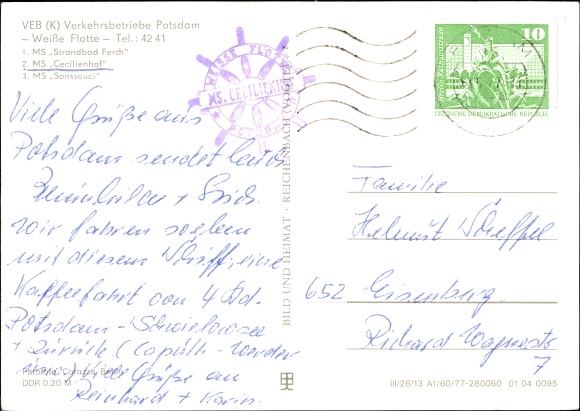 VEB (K) Verkehrsbetriebe Potsdam
– Weiße Flotte – Tel.: 42 41
1. MS „Strandbad Ferch"
2. MS „Cecilienhof"
3. MS „Sanssouci"
WEISSE FLOTTE
MS. CECILIENHOF
POTSDAM
10
Berlin, Rathausstraße
DEUTSCHE DEMOKRATISCHE REPUBLIK
Viele Grüße aus
Potsdam sendet Euch
wir fahren soeben
mit diesem Schiff, eine
Kaffeefahrt von 4 Std.
Potsdam - Schwielowsee
+ zurück (Caputh - Werder
Viele Grüße an
Reinhard + Karin.
BILD UND HEIMAT · REICHENBACH (VOGTL)
Familie
Helmut Scheffel
652 Eisenberg
Richard Wagnerstr
7
DDR 0,20 M
III/26/13 A1/60/77-280060 01 04 0095